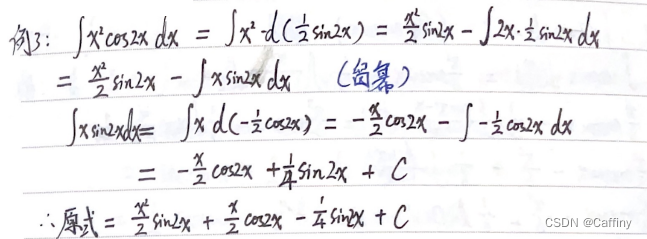 例3: ∫x²cos2x dx = ∫x²·d(½sin2x) = x²/2 sin2x - ∫2x·½sin2x dx
= x²/2 sin2x - ∫x sin2x dx (留幂)
∫x sin2x dx = ∫x d(-½cos2x) = -x/2 cos2x - ∫-½cos2x dx
= -x/2 cos2x + ¼sin2x + C
∴原式 = x²/2 sin2x + x/2 cos2x - ¼sin2x + C
CSDN @Caffiny